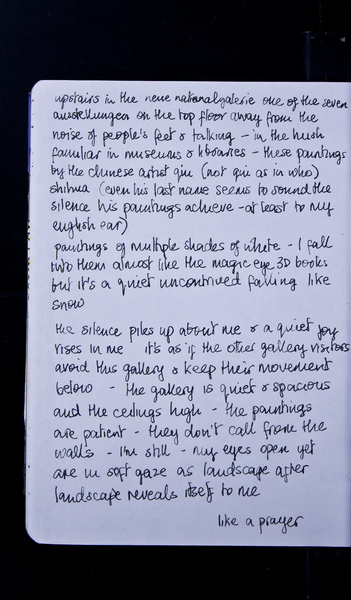 upstairs in the neue nationalgalerie one of the seven
ausstellungen on the top floor away from the
noise of people's feet & talking - in the hush
familiar in museums & libraries - these paintings
by the chinese artist qiu (not qui as in who)
shihua (even his last name seems to sound the
silence his paintings achieve - at least to my
english ear)
paintings of multiple shades of white - I fall
into them almost like the magic eye 3D books
but it's a quiet uncontrived falling like
snow
the silence piles up about me & a quiet joy
rises in me it's as if the other gallery visitors
avoid this gallery & keep their movement
below - the gallery is quiet & spacious
and the ceilings high - the paintings
are patient - they don't call from the
walls - I'm still - my eyes open yet
are in soft gaze as landscape after
landscape reveals itself to me
like a prayer